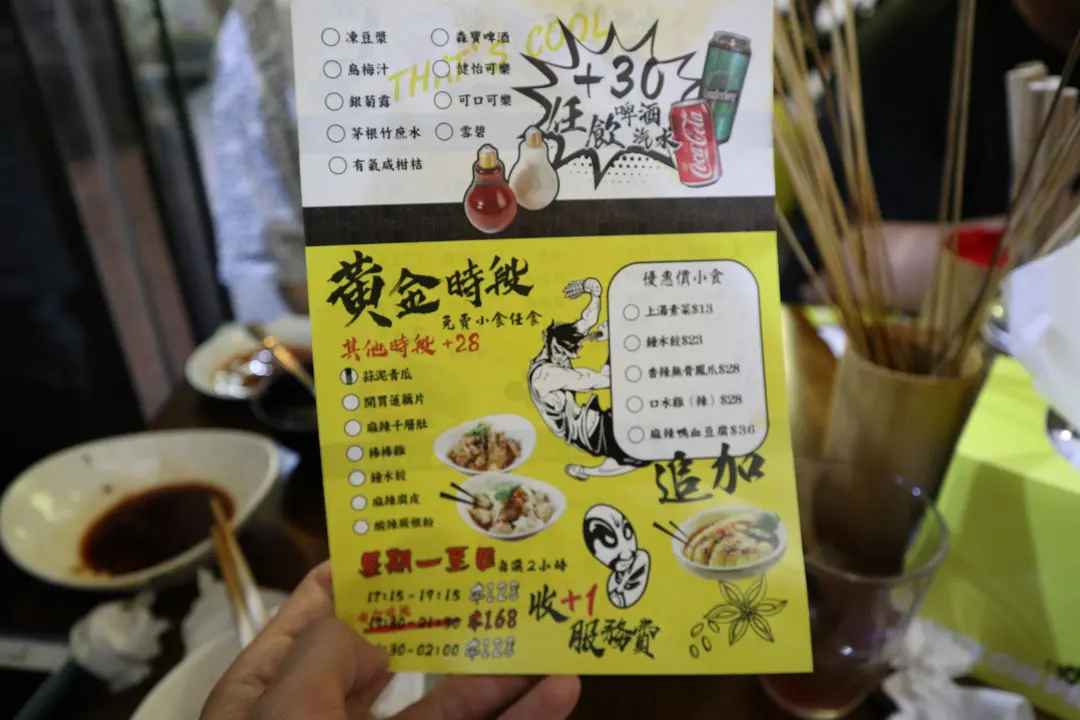 THAT'S COOL
凍豆漿
烏梅汁
銀菊露
茅根竹庶水
有氣咸柑桔
森寶啤酒
健怡可樂
可口可樂
雪碧
+30
任飲
啤酒
汽水
Coca-Cola
黃金時段
免費小食任食
其他時段 +28
蒜泥青瓜
開胃蓮藕片
麻辣千層肚
棒棒雞
鐘水餃
麻辣腐皮
酸辣蕨根粉
優惠價小食
上湯素菜$13
鐘水餃$23
香辣無骨鳳爪$28
口水雞（辣）$28
麻辣鴨血豆腐$36
追加
星期一至日 自選2小時
17:15-19:15 $128
$168
:30-02:00 $128
收+1
服務費